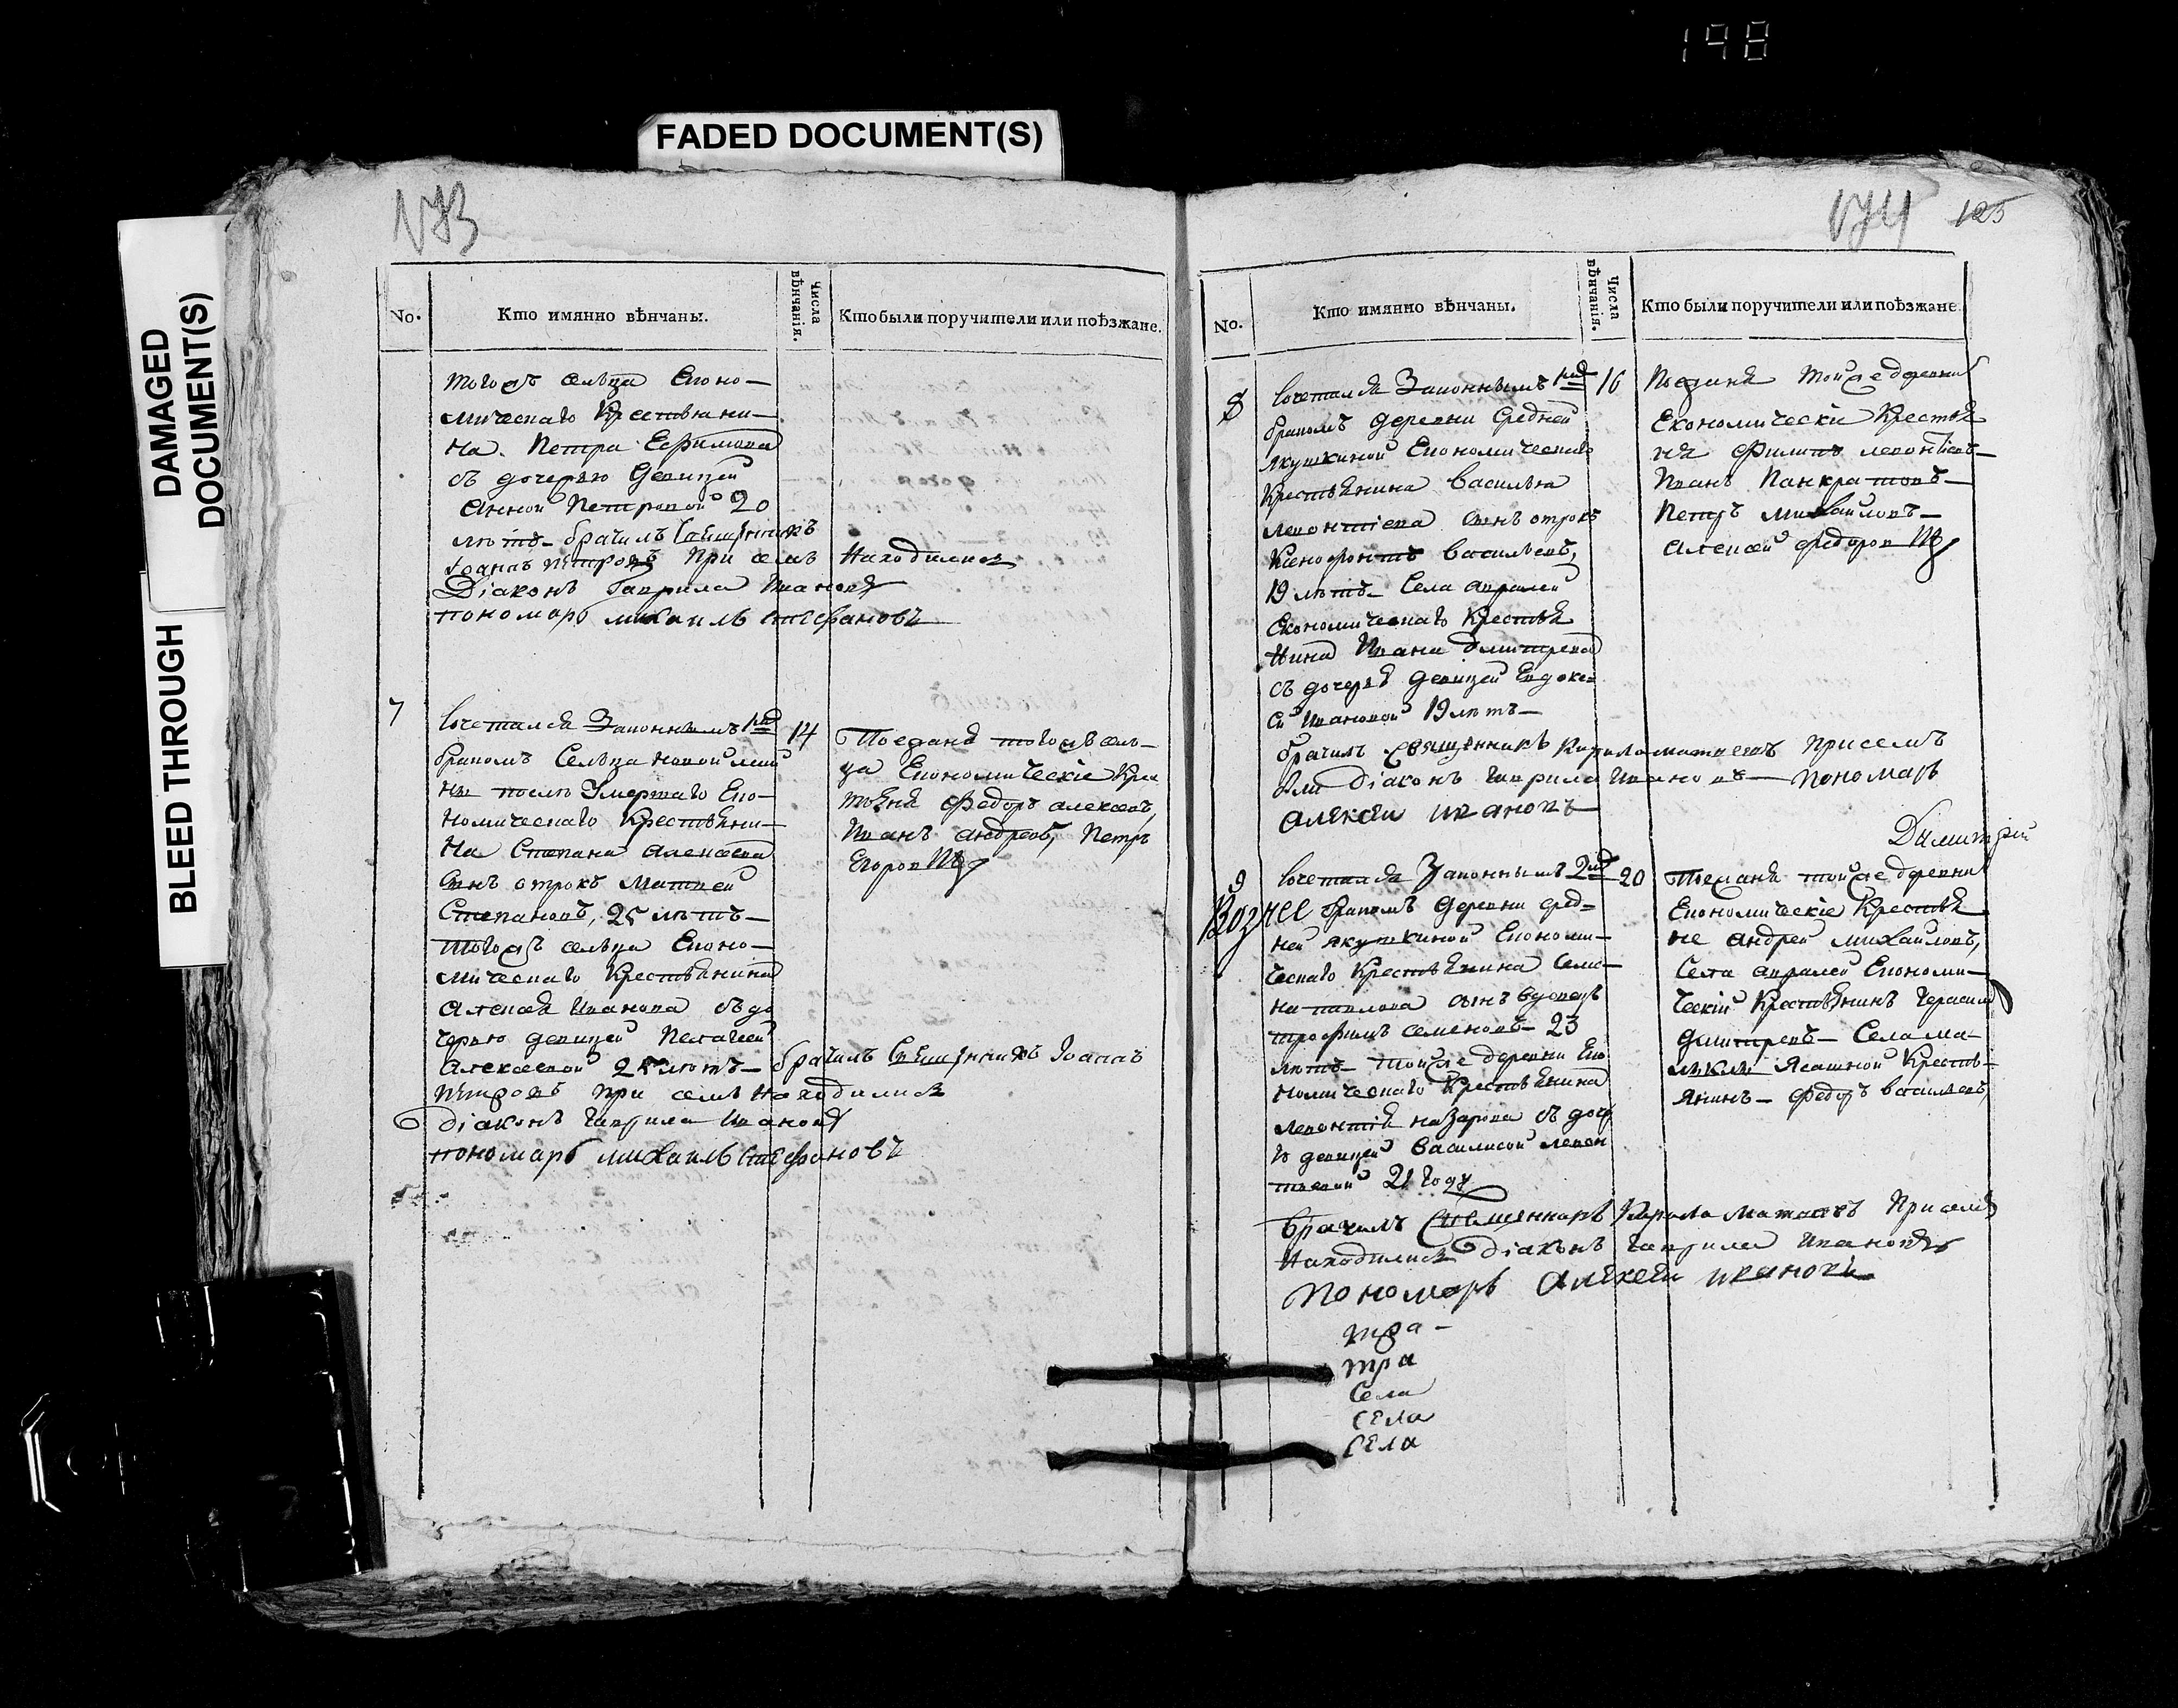 198
FADED DOCUMENT(S)
DAMAGED
DOCUMENT(S)
BLEED THROUGH
173
No.
Кто имянно вѣнчаны.
Числа
вѣнчанія.
Кто были поручители или поѣзжане.
тогожъ сельца Еконо-
мическаго Крестьяни-
на Петра Ефимова
съ дочерью девицей
Анной Петровой 20
летъ- брачилъ Священникъ
Іоаннъ Петровъ при семъ находились
Діаконъ Гаврила Ивановъ
пономарь михаилъ стефановъ
7
Сочетался Законнымъ 1мъ
бракомъ Сельца новой
после Умершаго Еко-
номическаго Крестьяни-
на Степана алексеева
Сынъ отрокъ Матвей
Степановъ, 25 летъ-
тогожъ сельца Еконо-
мическаго Крестьянина
Алексея Иванова съ до
черью девицей Пелагеей
Алексеевой 25 летъ- брачилъ Священникъ Іоаннъ
Петровъ при семъ находились
діаконъ Гаврила Ивановъ
пономарь михаилъ стефановъ
14
Поезжаня тогожъ сель-
ца Економическіе Крес
тьяня Федоръ алексеевъ,
Иванъ андреевъ, Петръ
Егоровъ
174
125
No.
Кто имянно вѣнчаны.
Числа
вѣнчанія.
Кто были поручители или поѣзжане.
8
Сочетался Законнымъ 1мъ
бракомъ деревни Средней
якушкиной Економическаго
Крестьянина Василья
леонтіева Сынъ отрокъ
Ксенофонтъ Васильевъ,
19 летъ- Села апралей
Економическаго Крестья
нина Ивана дмитрева
съ дочерьй девицей Евдоке
ей Ивановой 19 летъ-
брачилъ Священникъ Кирила матвеевъ при семъ
были діаконъ Гаврила Ивановъ- пономарь
алексеи ивановъ
16
Поезжаня тойже деревни
Економическіе Крестья
ня Филипъ леонтіевъ-
Иванъ Панкратовъ-
Петръ михайловъ-
Алексей федоров
Димитрий
9
Сочетался Законнымъ 2мъ
бракомъ деревни сред-
ней якушкиной Економи-
ческаго Крестьянина Семе-
на павлова сынъ вдовецъ
трофимъ семеновъ- 23
летъ- тойже деревни Еко
номическаго Крестьянина
леонтія назарова съ дочер
ю девицей Василисой леон
тьевой 21 году
брачилъ Священникъ Кирила матвеевъ При семъ
Находились діаконъ Гаврила Ивановъ
Пономарь алексеи ивановъ
20
Поезжаня тойже деревни
Економическіе Крестья
не андрей михайловъ,
Села апралей Економи-
ческій Крестьянинъ Герасимъ
дмитревъ- Села ма-
Ясашной Кресть-
янинъ- Федоръ васильевъ,
тра-
тра
Села
села
села